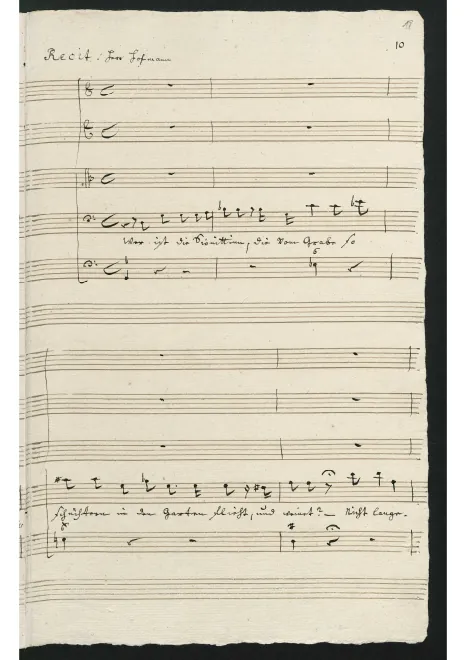 10
Recit: Herr Hofmann
Wer ist die Sionitinn, die vom Grabe so
6
schüchtern in den Garten flieht, und weint? – Nicht lange.